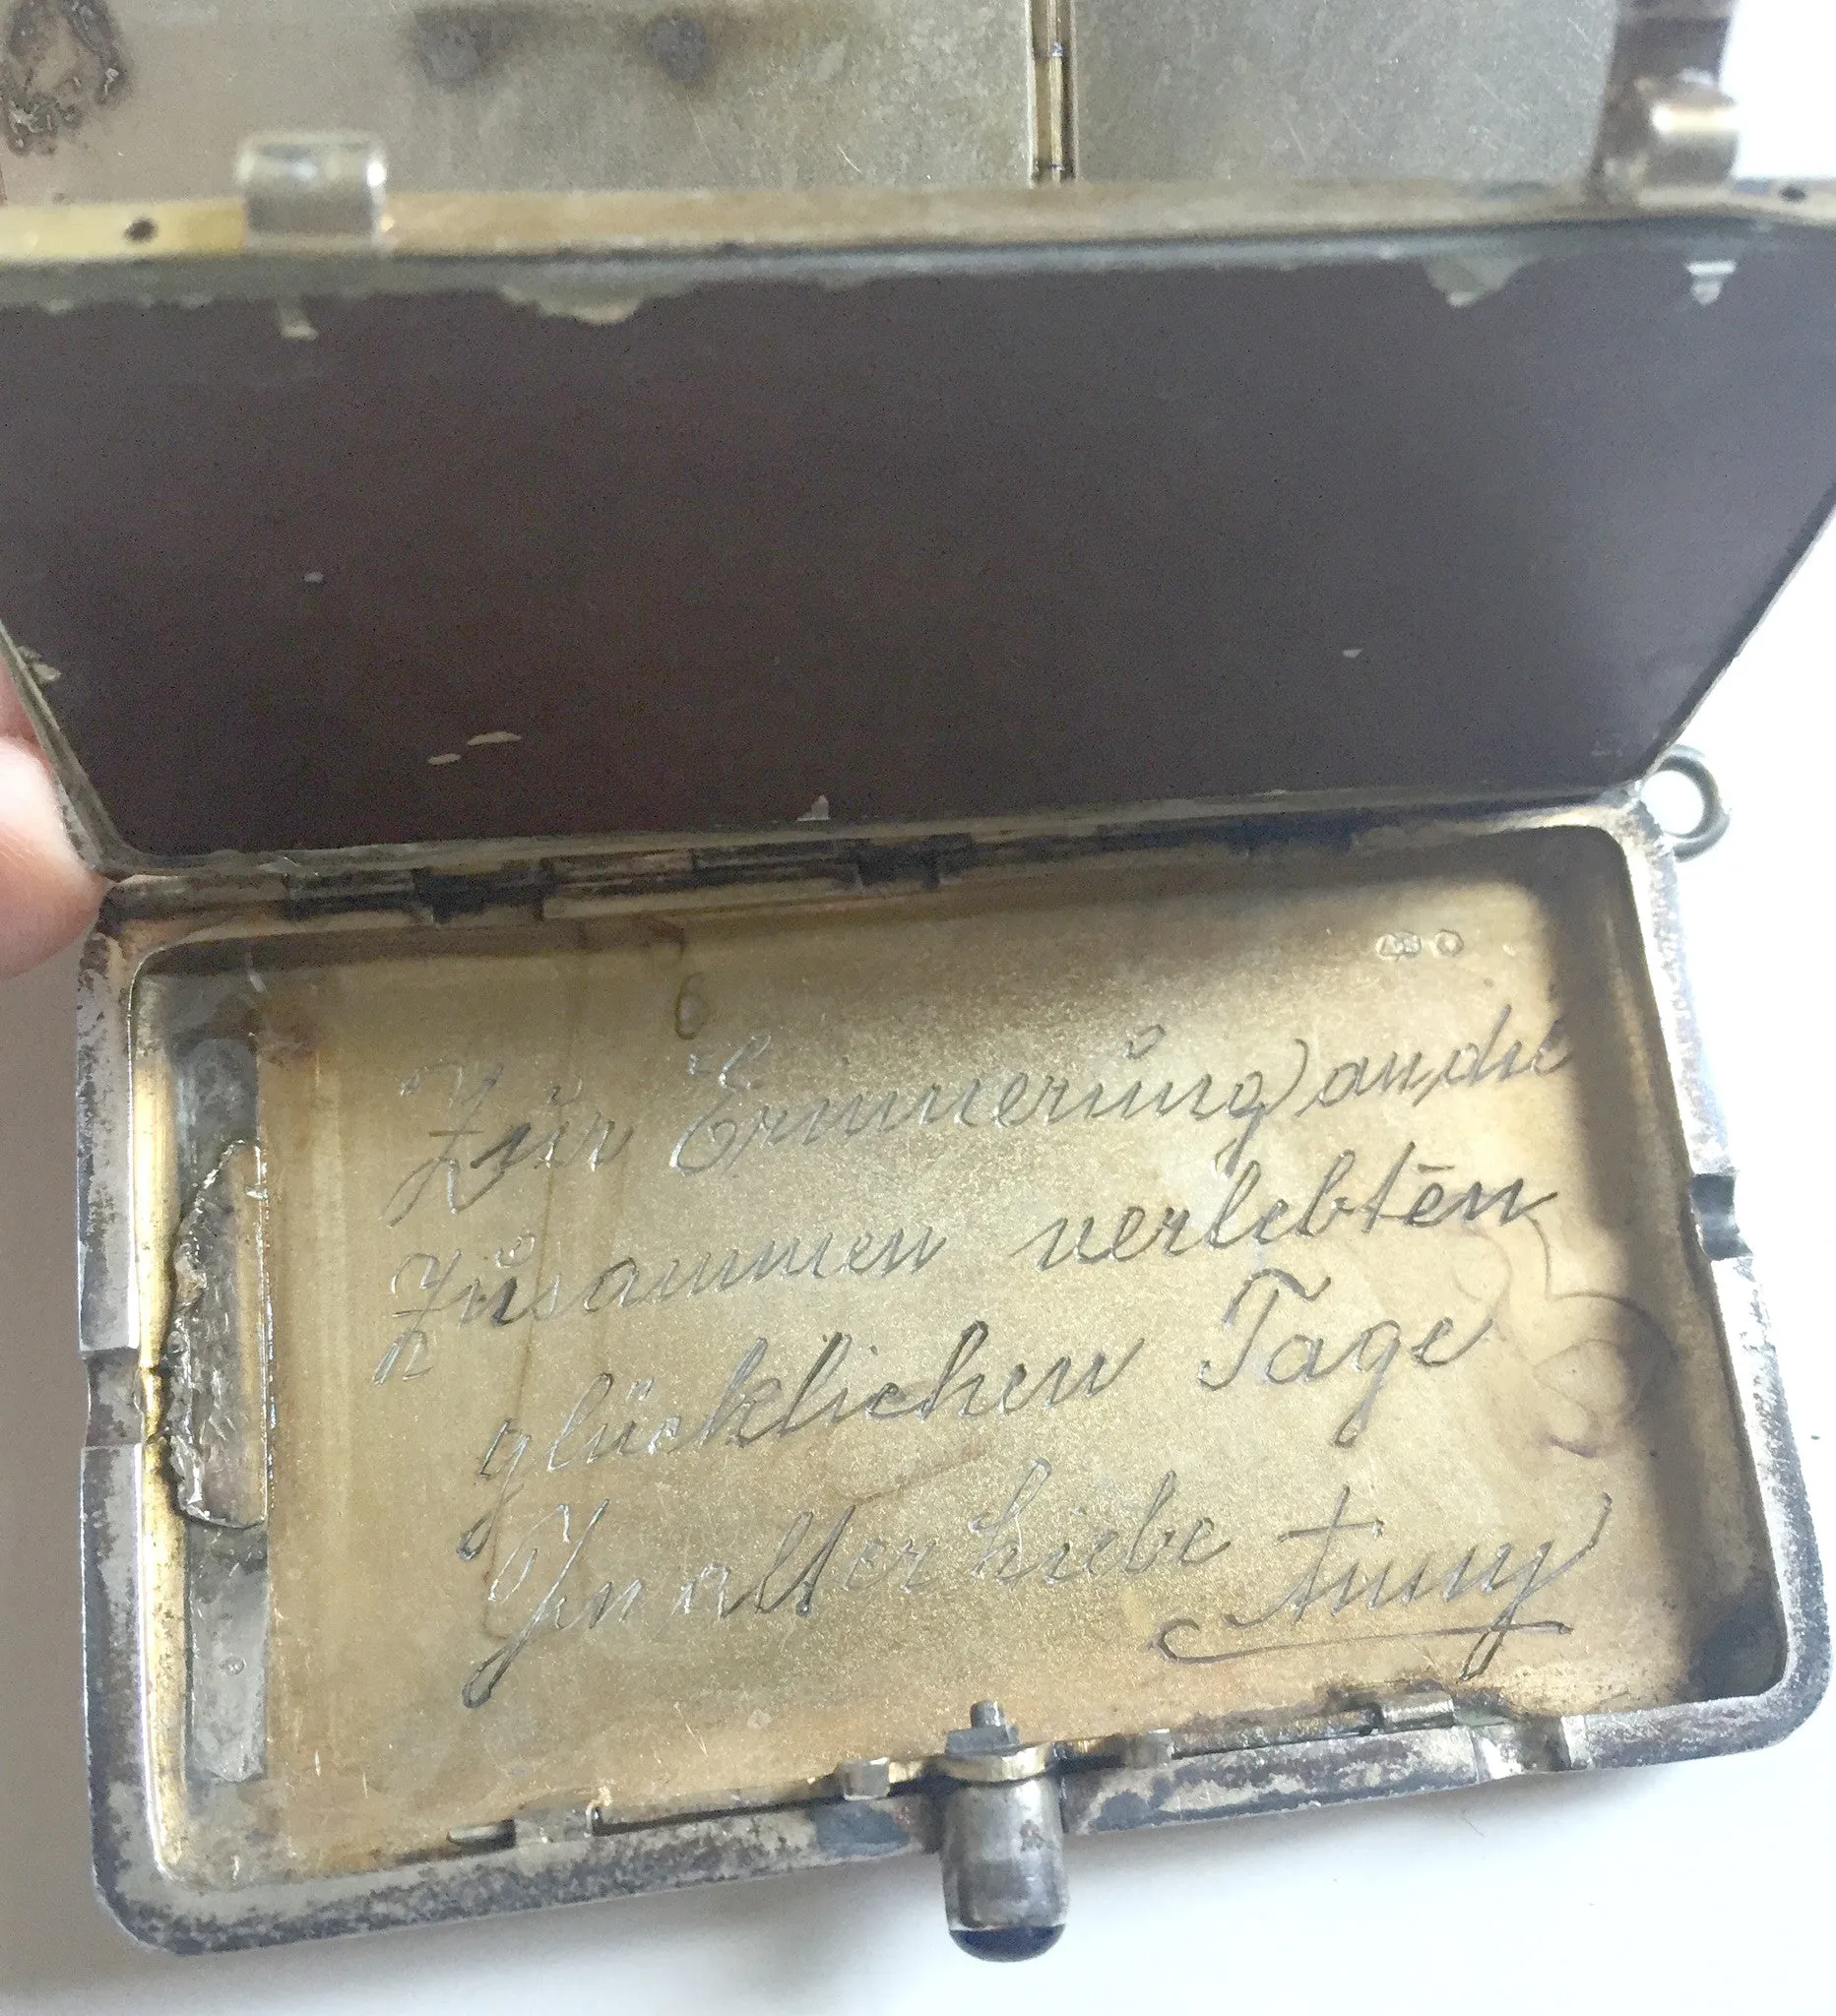 6
Zur Erinnerung an die
zusammen verlebten
glücklichen Tage
In alter Liebe Anny